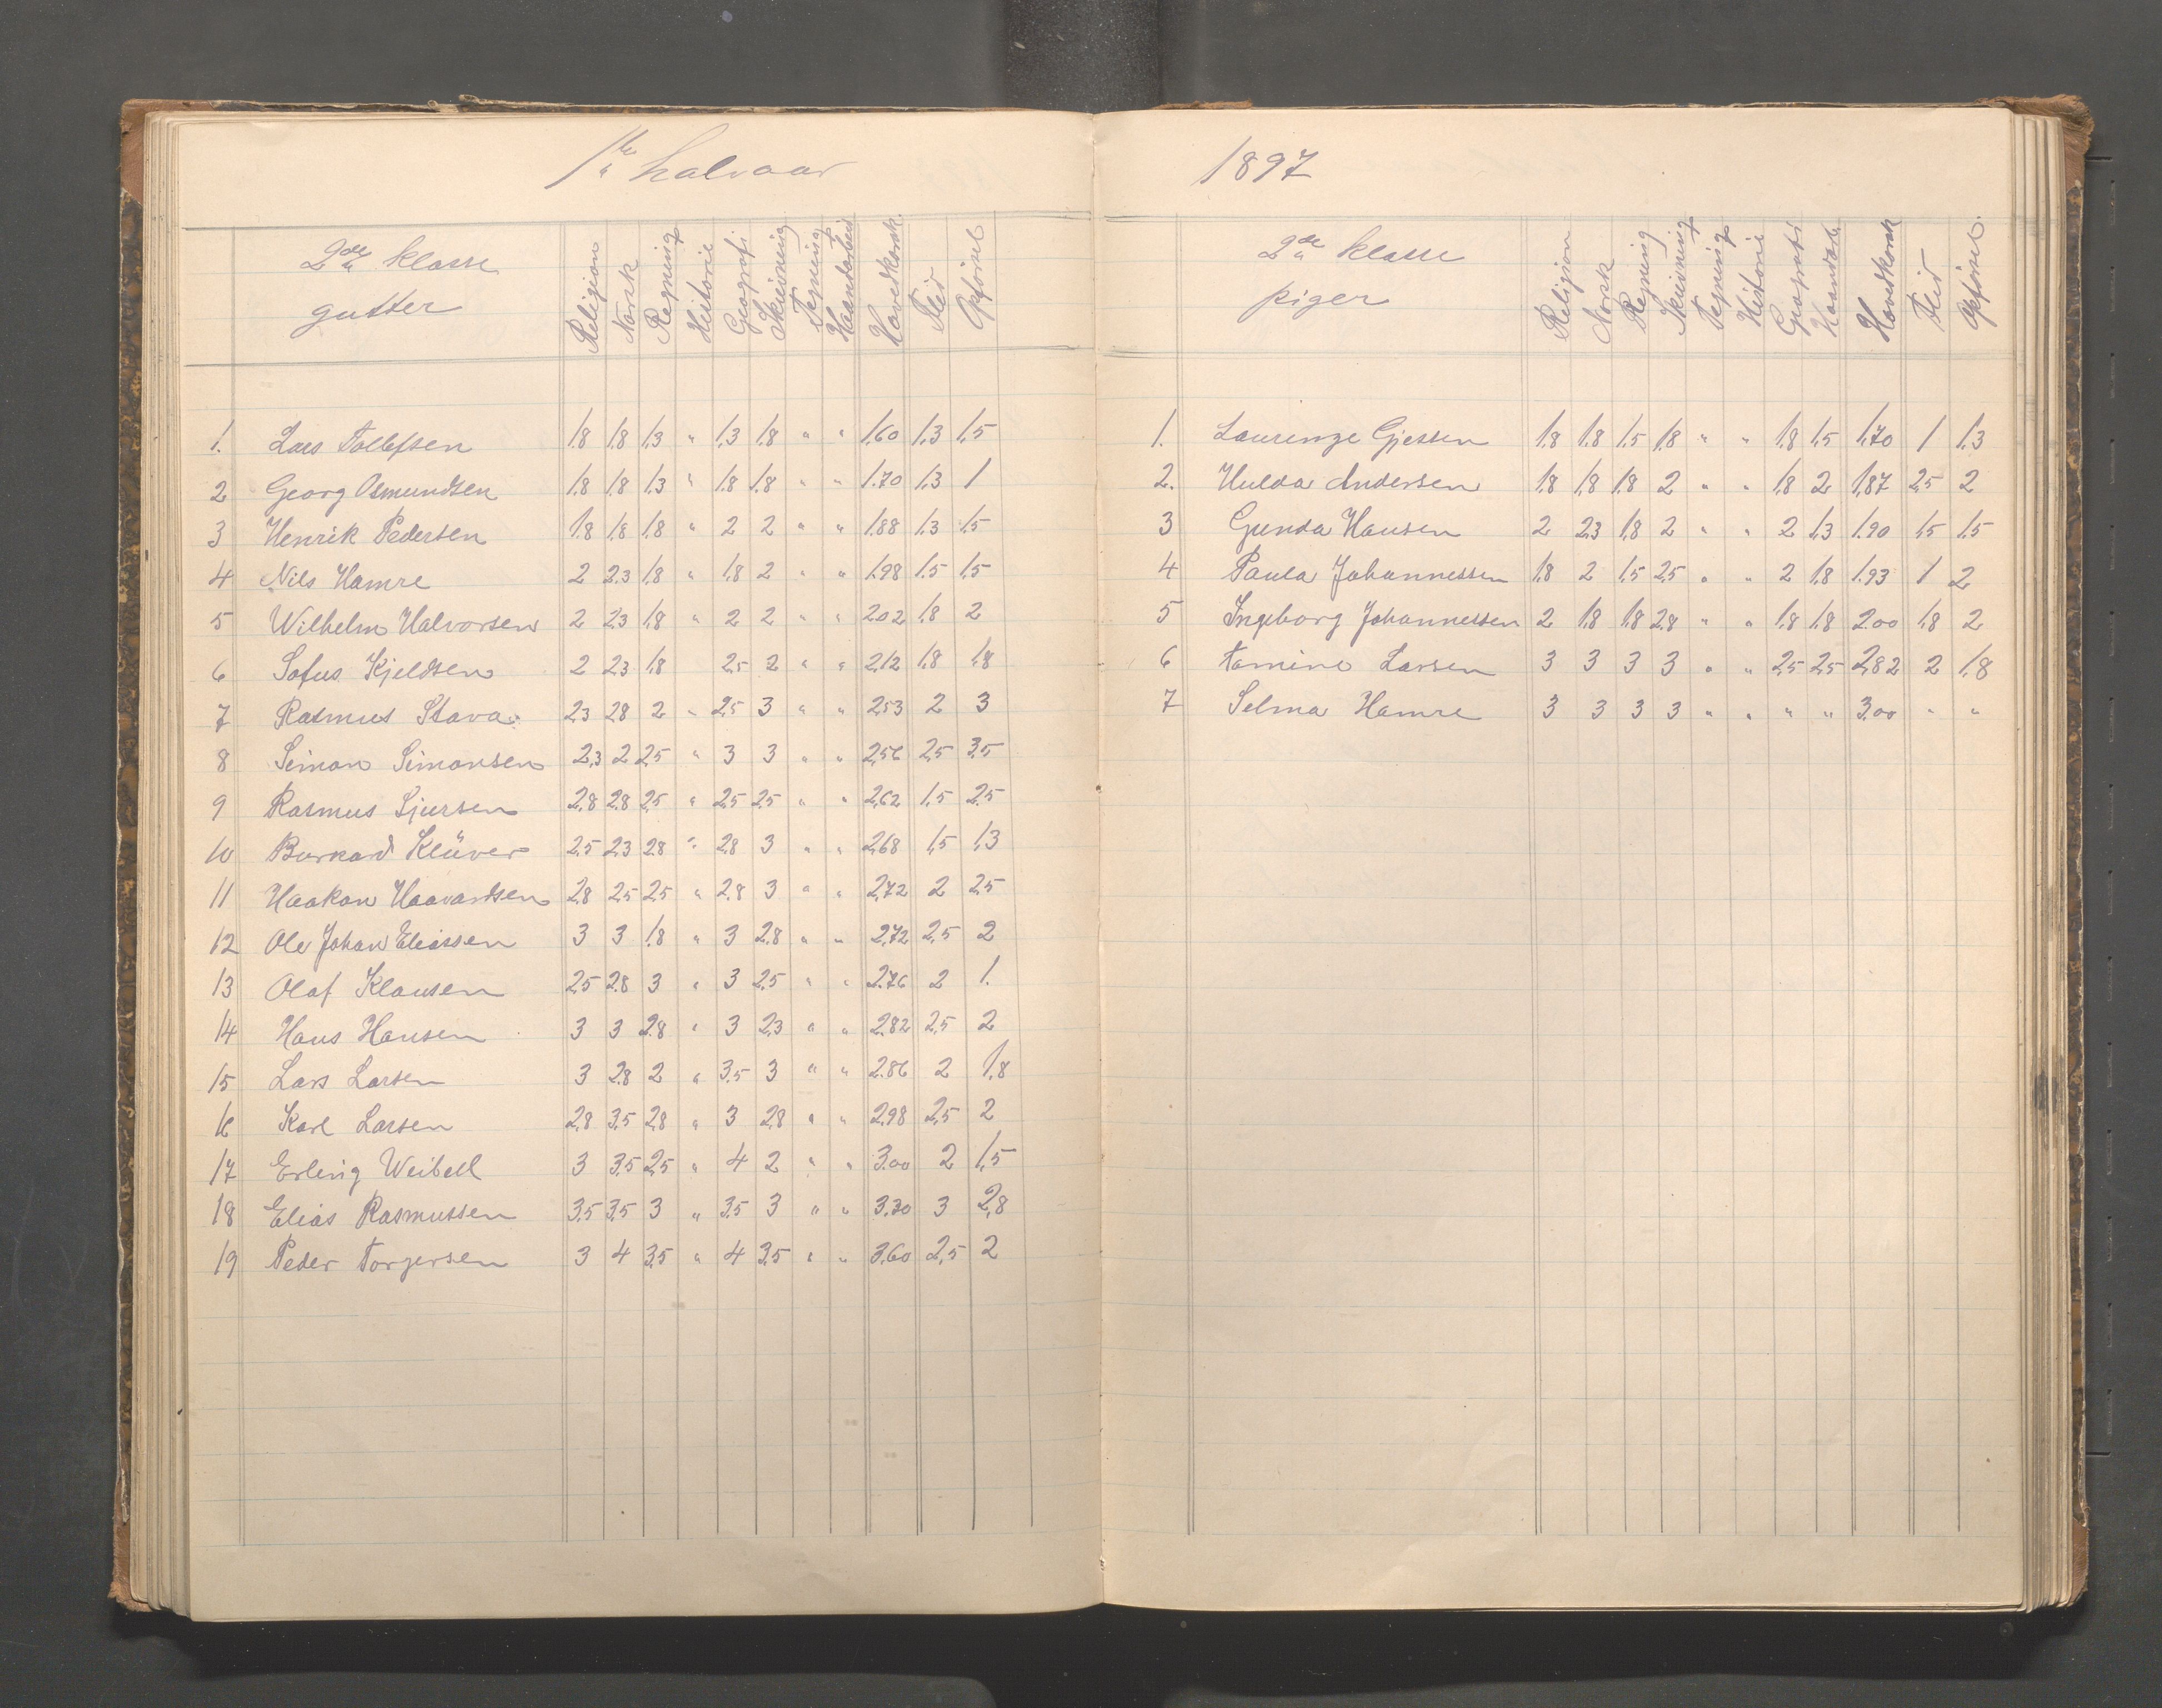 1ste halvaar
2den klasse
gutter
Religion Norsk Regning Historie Geografi Skrivning Tegning Haandarbeid Hovedkarak. Flid Opførsel
1. Lars Tollefsen 1,8 1,8 1,3 " 1,3 1,8 " " 1,60 1,3 1,5
2 Georg Osmundsen 1,8 1,8 1,3 " 1,8 1,8 " " 1.70 1,3 1
3 Henrik Pedersen 1,8 1,8 1,8 " 2 2 " " 1,88 1,3 1,5
4 Nils Hamre 2 2,3 1,8 " 1,8 2 " " 1,98 1,5 1,5
5 Wilhelm Halvorsen 2 2,3 1,8 " 2 2 " " 2,02 1,8 2
6 Sofus Kjeldsen 2 2,3 1,8 2,5 2 " " 2,12 1,8 1,8
7 Rasmus Stava 2,3 2,8 2 " 2,5 3 " " 2,53 2 3
8 Simon Simonsen 2,3 2 2,5 " 3 3 " " 2,56 2,5 3,5
9 Rasmus Sjursen 2,8 2,8 2,5 " 2,5 2,5 " " 2,62 1,5 2,5
10 Burkard Klüver 2,5 2,3 2,8 " 2,8 3 " " 2,68 1,5 1,3
11 Haakon Haavardsen 2,8 2,5 2,5 " 2,8 3 " " 2,72 2 2,5
12 Ole Johan Eliassen 3 3 1,8 " 3 2,8 " " 2,72 2,5 2
13 Olaf Klausen 2,5 2,8 3 " 3 2,5 " " 2.76 2 1.
14 Hans Hansen 3 3 2,8 " 3 2,3 " " 2,82 2,5 2
15 Lars Larsen 3 2,8 2 " 3,5 3 " " 2.86 2 1,8
16 Karl Larsen 2,8 3,5 2,8 " 3 2,8 " " 2,98 2,5 2
17 Erling Weibell 3 3,5 2,5 " 4 2 " " 3,00 2 1,5
18 Elias Rasmussen 3,5 3,5 3 " 3,5 3 " " 3,30 3 2,8
19 Peder Torgersen 3 4 3,5 " 4 3,5 " " 3,60 2,5 2
1897
2den klasse
piger
Religion Norsk Regning Skrivning Tegning Historie Geografi Haandarb. Hovedkarak Flid Opførsel.
1. Laurenze Gjessen 1,8 1,8 1,5 1,8 " " 1,8 1,5 1,70 1 1,3
2. Hulda Andersen 1,8 1,8 1,8 2 " " 1,8 2 1,87 2,5 2
3 Gunda Hansen 2 2,3 1,8 2 " " 2 1,3 1.90 1,5 1,5
4 Paula Johannessen 1,8 2 1,5 2,5 " " 2 1,8 1.93 1 2
5 Ingeborg Johannessen 2 1,8 1,8 2,8 " " 1,8 1,8 2.00 1,8 2
6 Tomine Larsen 3 3 3 3 " " 2,5 2,5 2,82 2 1,8
7 Selma Hamre 3 3 3 3 " " " " 3,00 " "